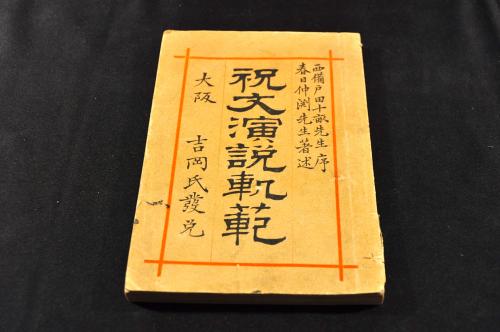 西備戸田十畝先生序
春日仲渕先生著述
祝文演説軌範
大阪 吉岡氏發兌